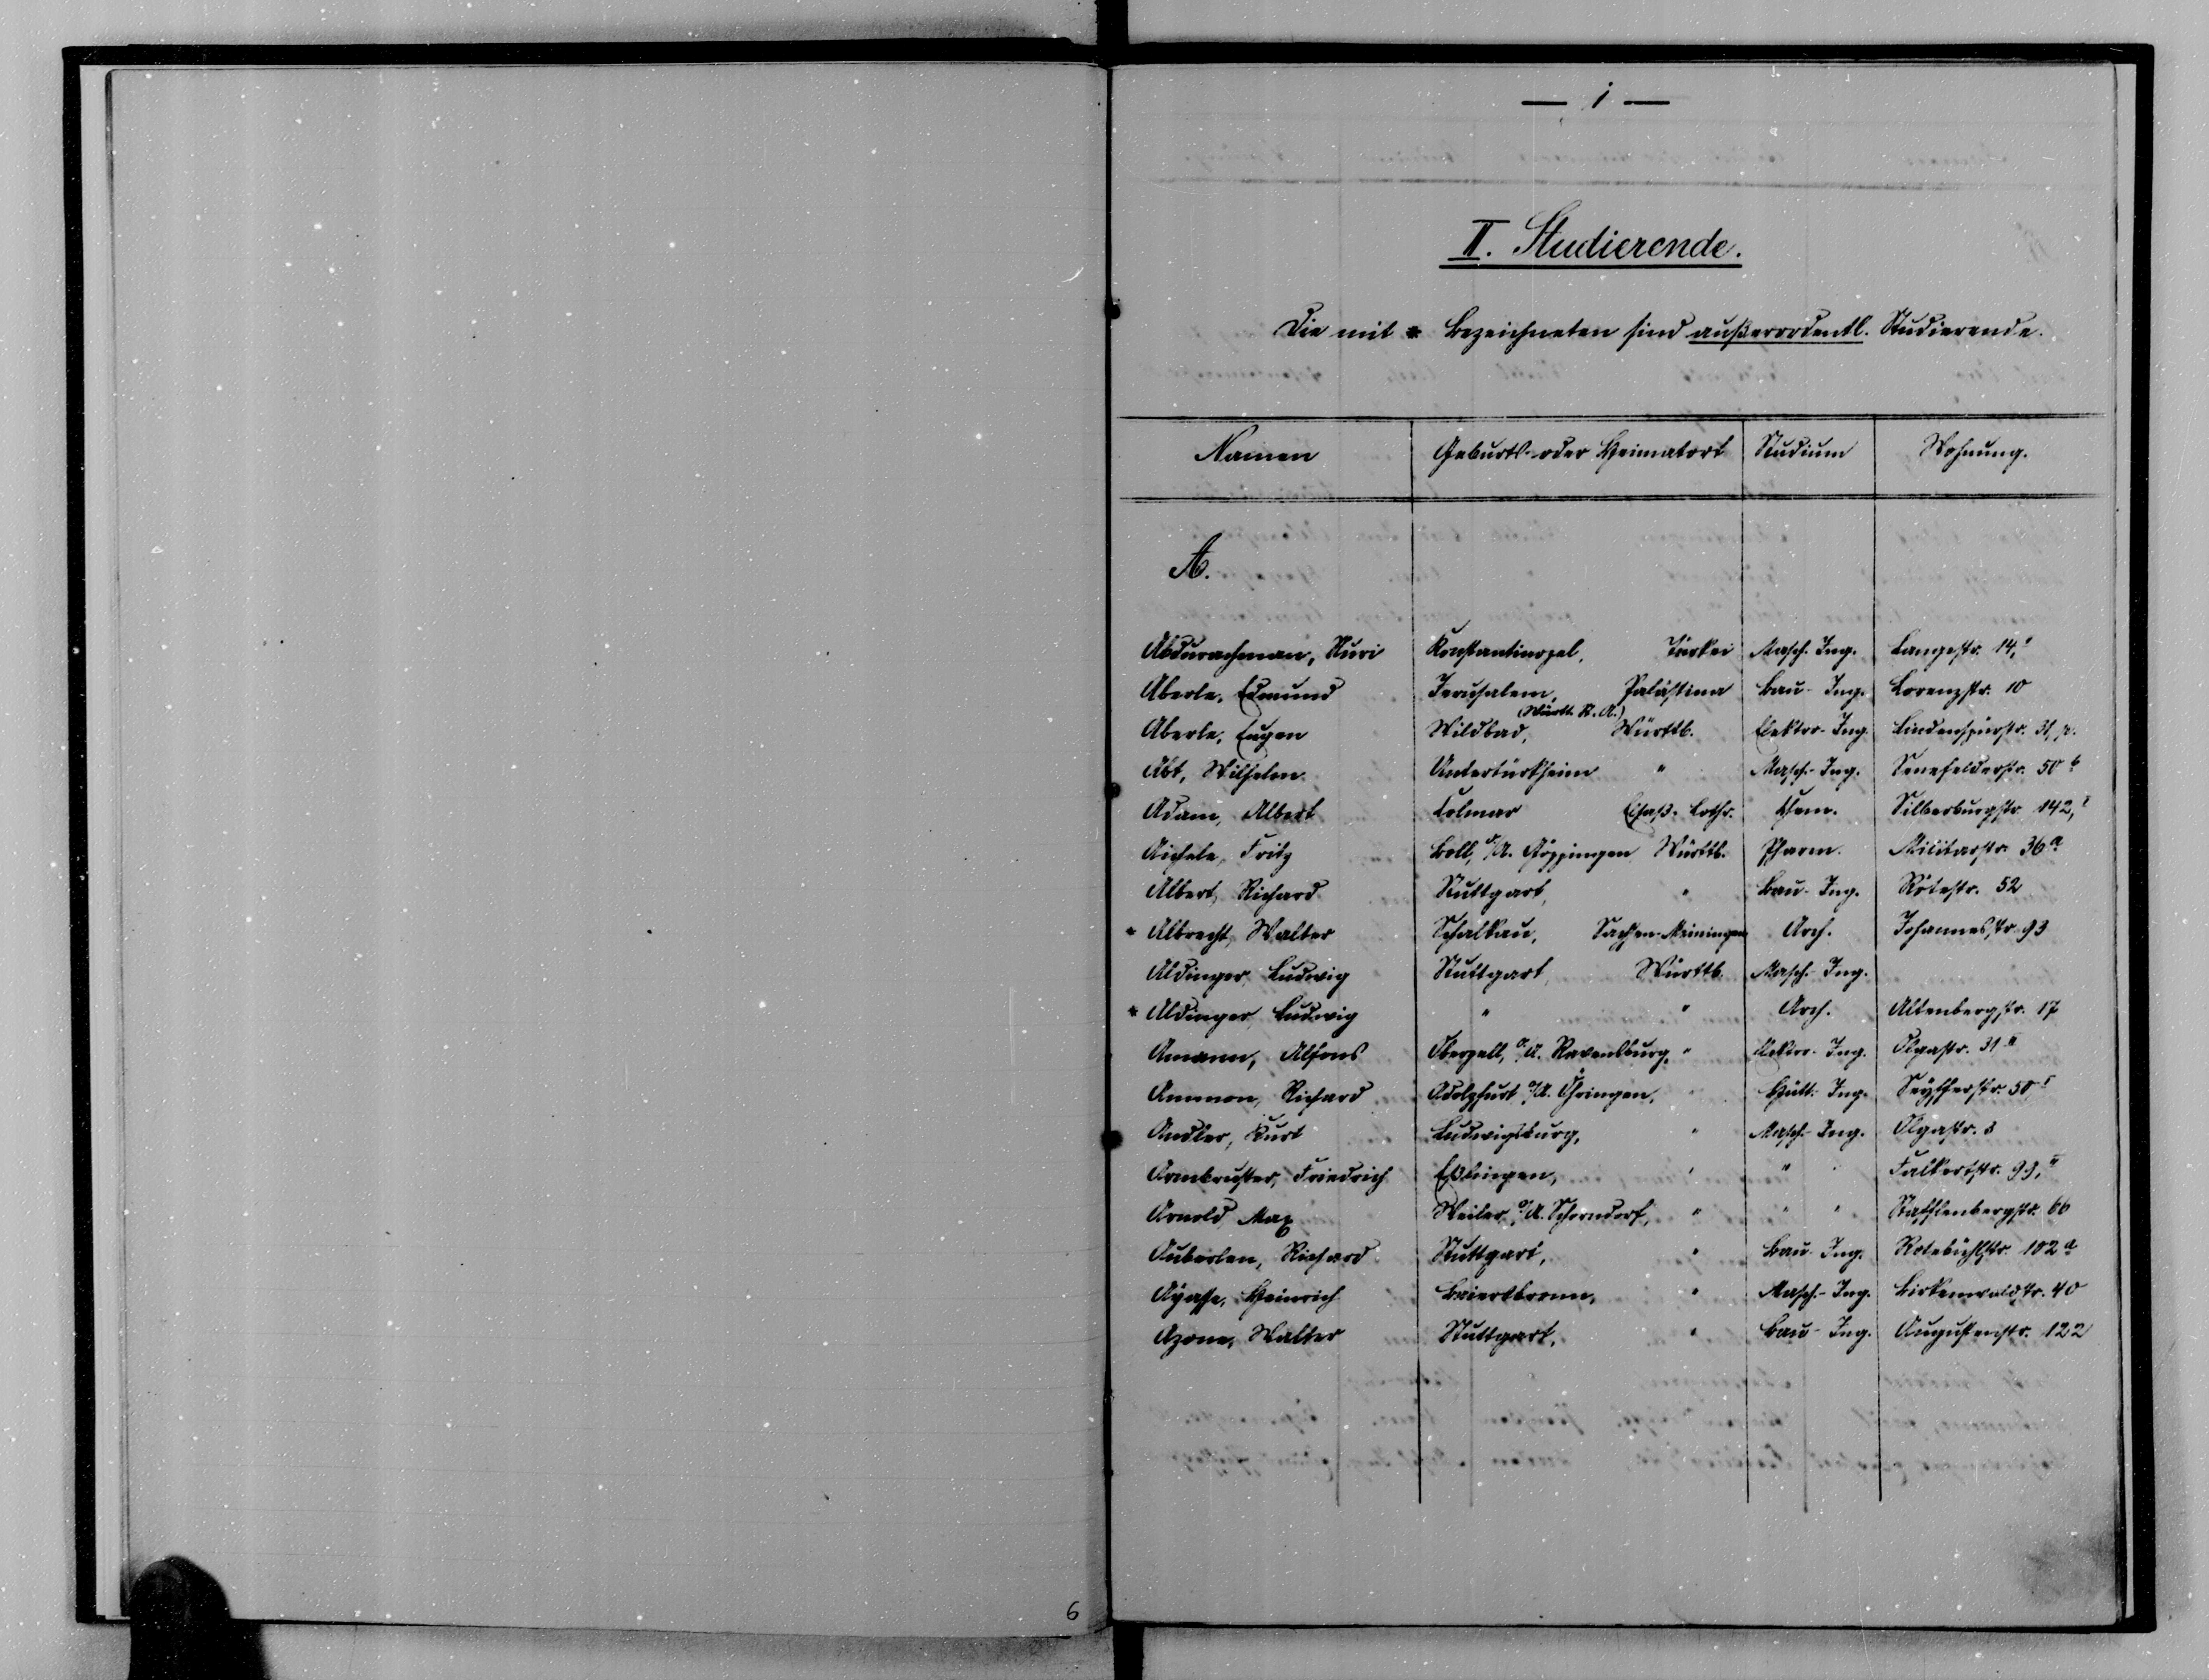 — 1 —
II. Studierende.
Die mit * bezeichneten sind außerordentl. Studierende.
Namen Geburts- oder Heimatort Studium Wohnung.
A.
Abdurachman, Nuri Konstantinopel, Türkei Masch. Ing. Langestr. 14,
Aberle, Edmund Jerusalem, Palästina Bau-Ing. Lorenzstr. 10
(Württ. St. A.)
Aberle, Eugen Wildbad, Württb. Elektro-Ing. Lindenspürstr. 31, p.
Abt, Wilhelm Untertürkheim " Masch.-Ing. Senefelderstr. 50 b
Adam, Albert Colmar Elsaß-Lothr. Chem. Silberburgstr. 142, I
Aichele, Fritz Boll, O/A. Göppingen Württb. Pharm. Militärstr. 36 a
Albert, Richard Stuttgart, " Bau-Ing. Rötestr. 52
* Albrecht, Walter Schalkau, Sachsen-Meiningen Arch. Johannesstr. 93
Aldinger, Ludwig Stuttgart, Württb. Masch.-Ing.
* Aldinger, Ludwig " " Arch. Altenbergstr. 17
Amann, Alfons Oberzell, O/A. Ravensburg, " Elektro-Ing. Olgastr. 31 II
Ammon, Richard Adolzfurt O/A. Öhringen, " Hütt.-Ing. Seyfferstr. 50 I
Andler, Kurt Ludwigsburg, " Masch.-Ing. Olgastr. 8
Armbruster, Friedrich Eßlingen, " " Falkertstr. 93, II
Arnold Max Weiler, O/A. Schorndorf, " " " Stafflenbergstr. 66
Auberlen, Richard Stuttgart, " Bau-Ing. Rotebühlstr. 102 a
Ayasse, Heinrich Baiersbronn, " Masch.-Ing. Birkenwaldstr. 40
Azone, Walter Stuttgart, " Bau-Ing. Augustenstr. 122
6